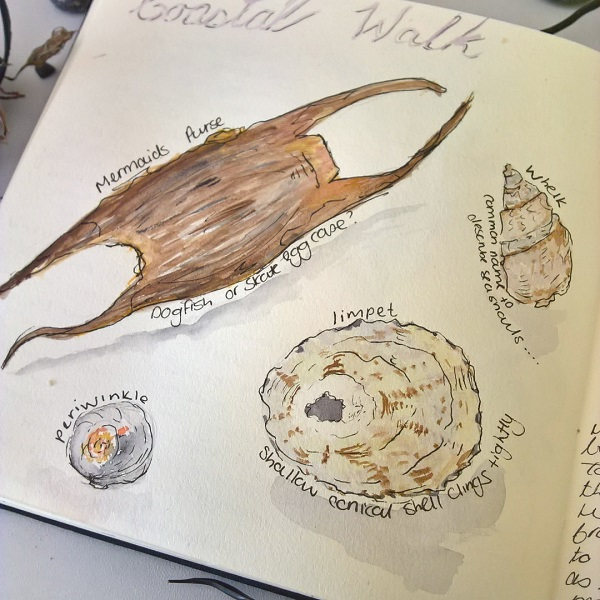 Coastal Walk
Mermaids Purse
Dogfish or Skate egg case?
Whelk
common name to
describe sea snails....
limpet
shallow conical shell clings tightly
periwinkle
to
as